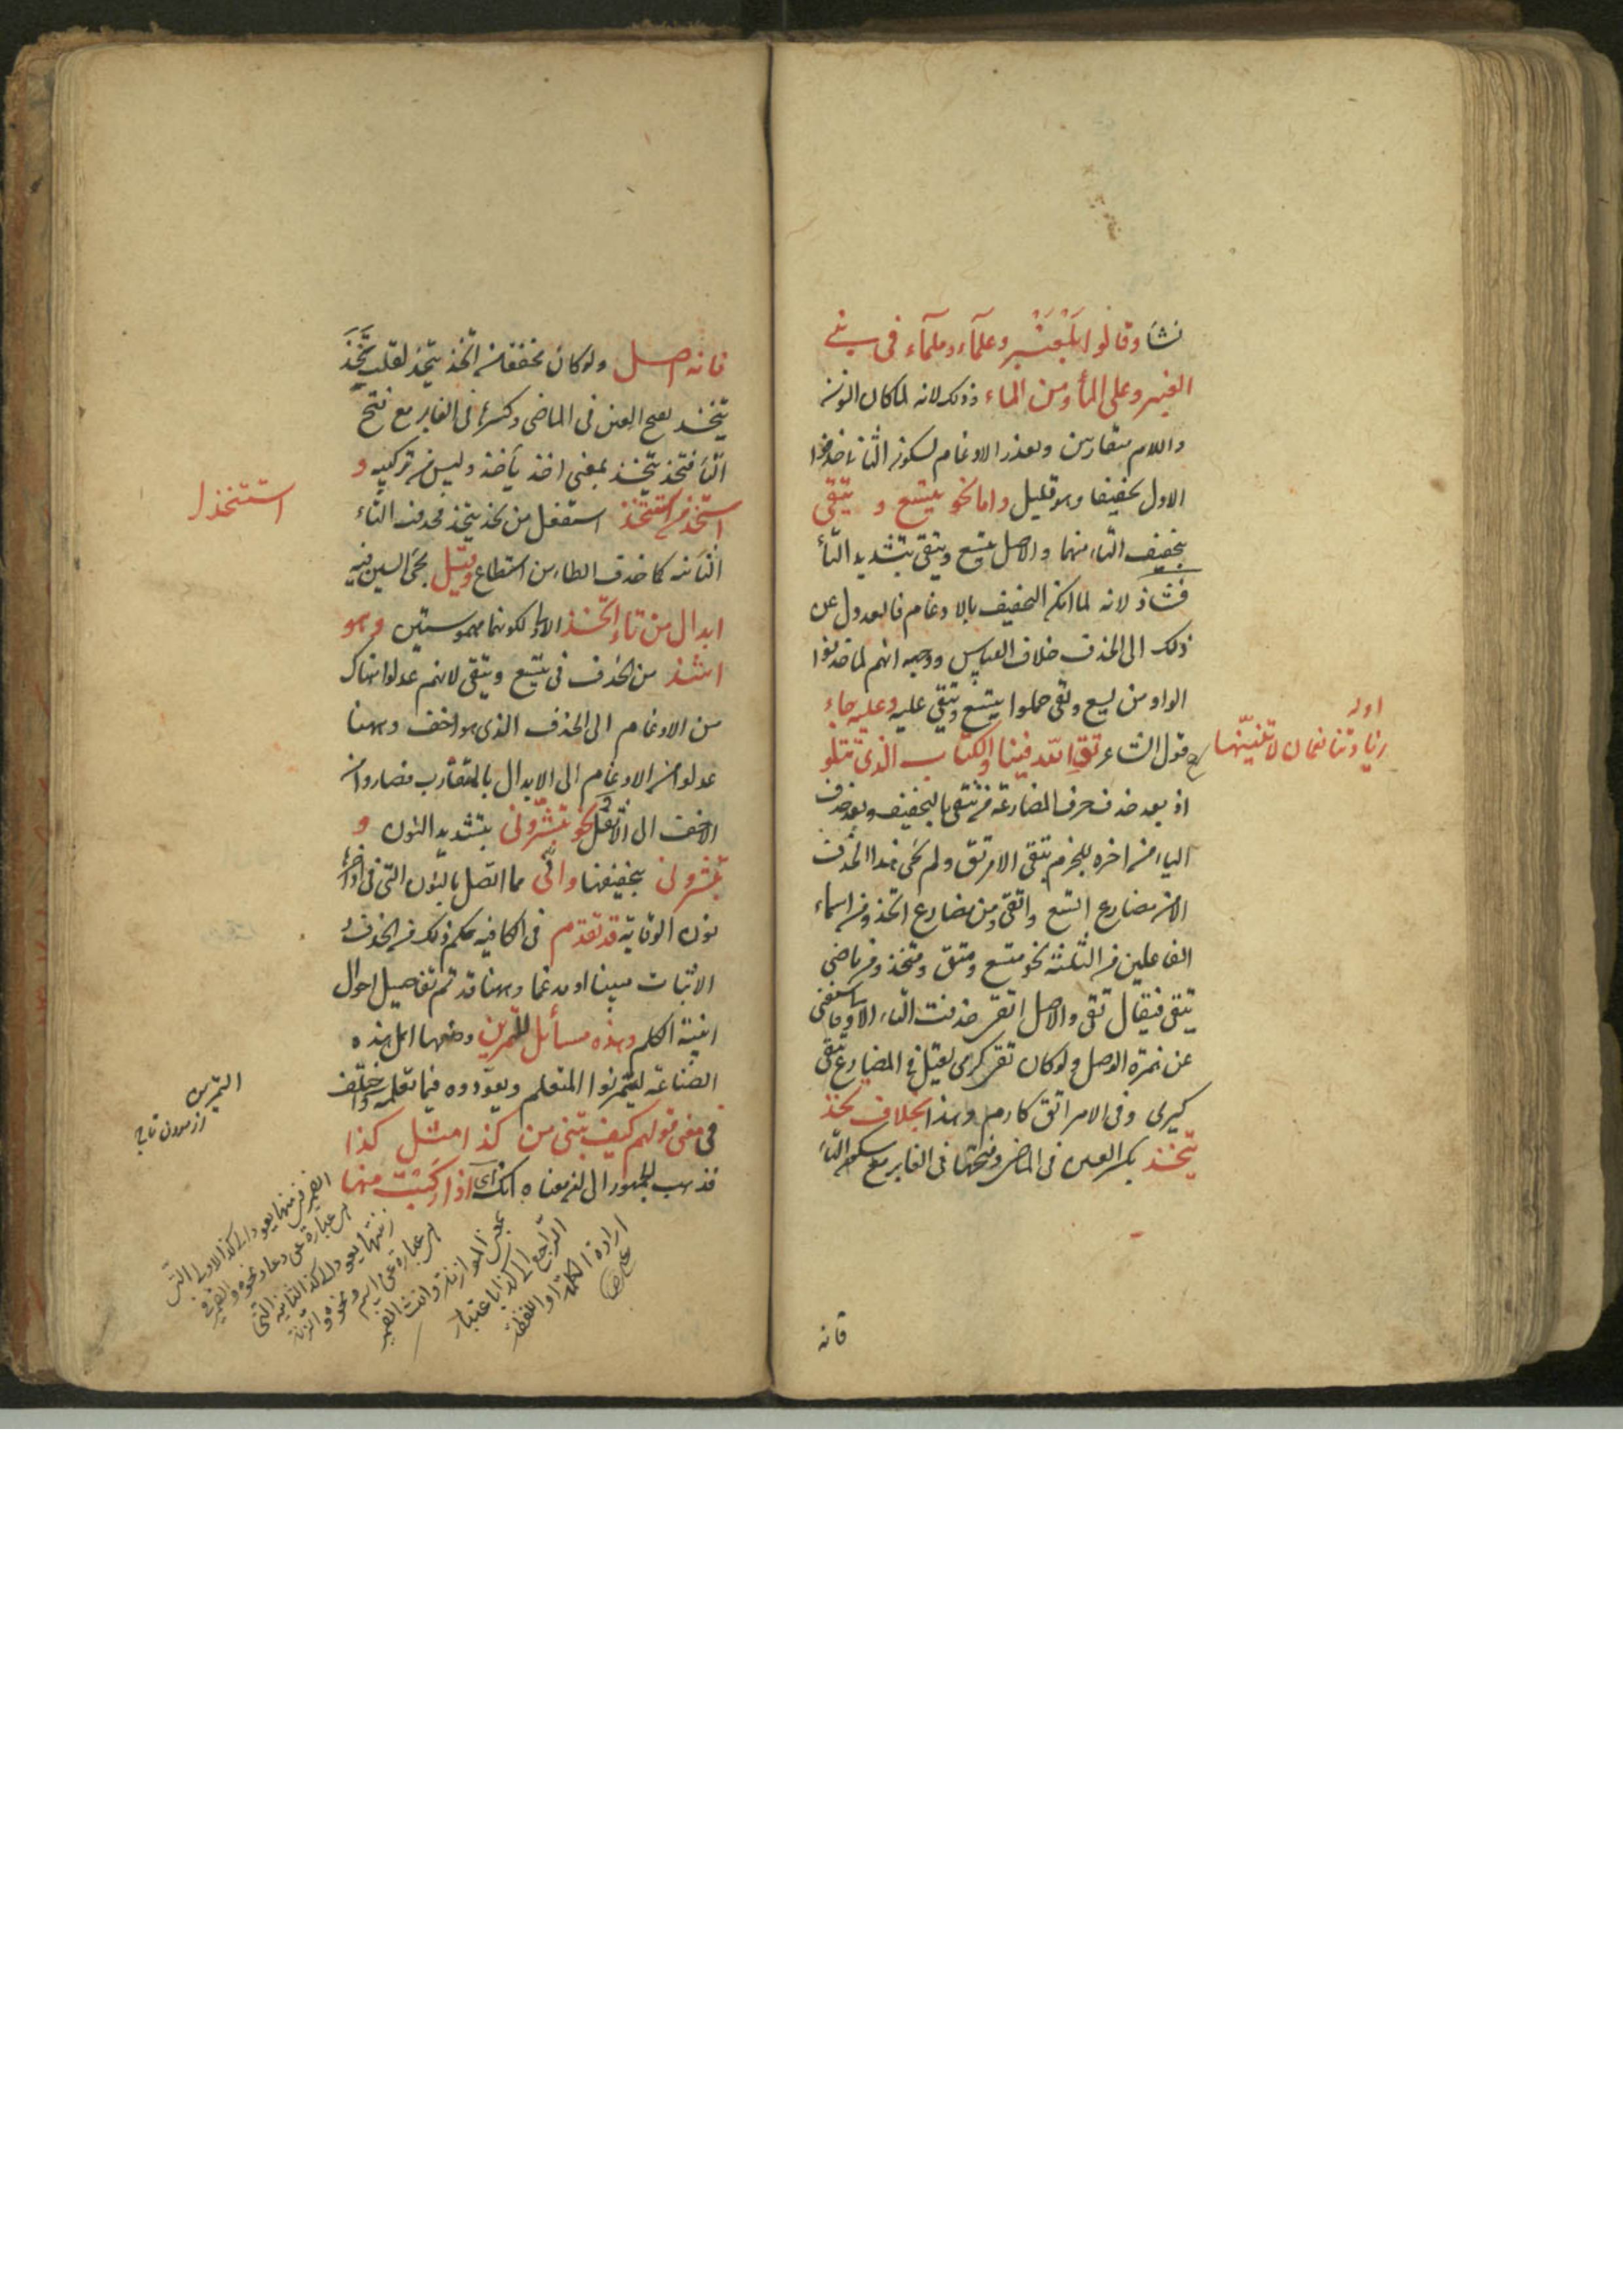 نشا وقالوا بلعنبر وعلماء وملماء فى بنى
العنبر وعلى الماء ومن الماء وذلك لانه لما كان النون
واللام متقاربين وتعذر الادغام لسكون الثانى حذفوا
الاول تخفيفا وهو قليل واما نحو يتسع و يتقى
بتخفيف التاء منهما والاصل يتسع ويتقى بتشديد التاء
فشاذ لانه لما امكن التخفيف بالادغام فالعدول عن
ذلك الى الحذف خلاف القياس ووجهه انهم لما حذفوا
الواو من يسع وتقى حملوا يتسع ويتقى عليه وعليه جاء
قول الشاعر تق الله فينا والكتاب الذى تتلو
اوله
زيادتنا نعمان لا تنسينّها
اذ بعد حذف حرف المضارعة من تتقى بالتخفيف وبعد حذف
الياء من اخره للجزم يبقى الامر تق ولم يجئ هذا الحذف
الا من مضارع اتسع واتقى ومن مضارع اتخذ ومن اسماء
الفاعلين من الثلثة نحو متسع ومتق ومتخذ ومن ماضى
يتقى فيقال تقى والاصل اتقى حذفت التاء الاولى فاستغنى
عن همزة الوصل ولو كان تقى كرمى لقيل فى المضارع يتقى
كيرمى وفى الامر اتق كارم وهذا بخلاف تخذ
يتخذ بكسر العين فى الماضى وفتحها فى الغابر مع سكون التاء
فانه
فانه اصل ولو كان مخففا من اتخذ يتخذ لقلت تخذ
يتخذ بفتح العين فى الماضى وكسرها فى الغابر مع فتح
التاء فتخذ يتخذ بمعنى اخذ يأخذ وليس من تركيبه و
استخذ من استتخذ استفعل من تخذ يتخذ فحذفت التاء
استتخذ
الثانية كما حذف الطاء من استطاع وقيل يجئ السين فيه
ابدال من تاء اتخذ الاولى لكونهما مهموستين وهو
اشذ من الحذف فى يتسع ويتقى لانهم عدلوا هناك
من الادغام الى الحذف الذى هو اخف وههنا
عدلوا من الادغام الى الابدال بالمتقارب فصاروا من
الاخف الى الاثقل ونحو تبشرونى بتشديد النون و
تبشرونى بتخفيفها وانى مما اتصل بالنون التى فى اواخره
نون الوقاية قد تقدم فى الكافية حكم ذلك من الحذف و
الاثبات مبينا او مدغما وههنا قد تم تفاصيل احوال
ابنية الكلم وهذه مسائل التمرين وضعها اهل هذه
الصناعة ليتمرنوا المتعلم ويعوّدوه فيما تعلمه واختلف
التمرين
فى معنى قولهم كيف تبنى من كذا مثل كذا
فذهب الجمهور الى ان معناه انك اى اذا ركبت منها
الضمير فى منها يعود الى كذا الاولى التى
هى عبارة عن دعا ونحوه والضمير فى
زنتها يعود الى كذا الثانية التى
هى عبارة عن اسم ونحوه والزنة
بمعنى الموازنة وانث الضمير
الراجع الى كذا باعتبار
ارادة الكلمة او اللفظة